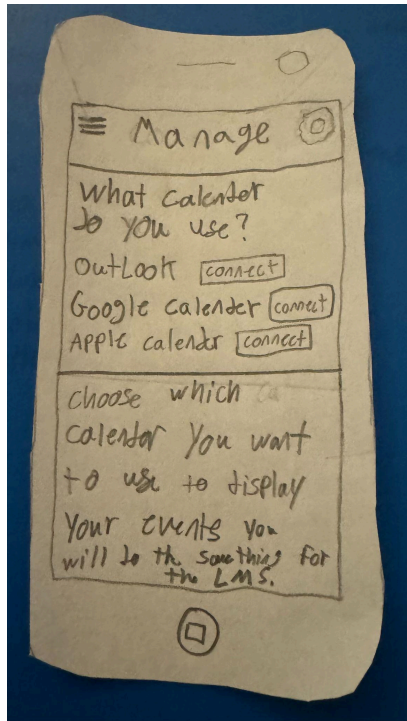 Manage
What calender
do you use?
OutLook connect
Google calender connect
Apple calender connect
choose which
calender you want
to use to display
your events you
will do the same thing for
the LMS.